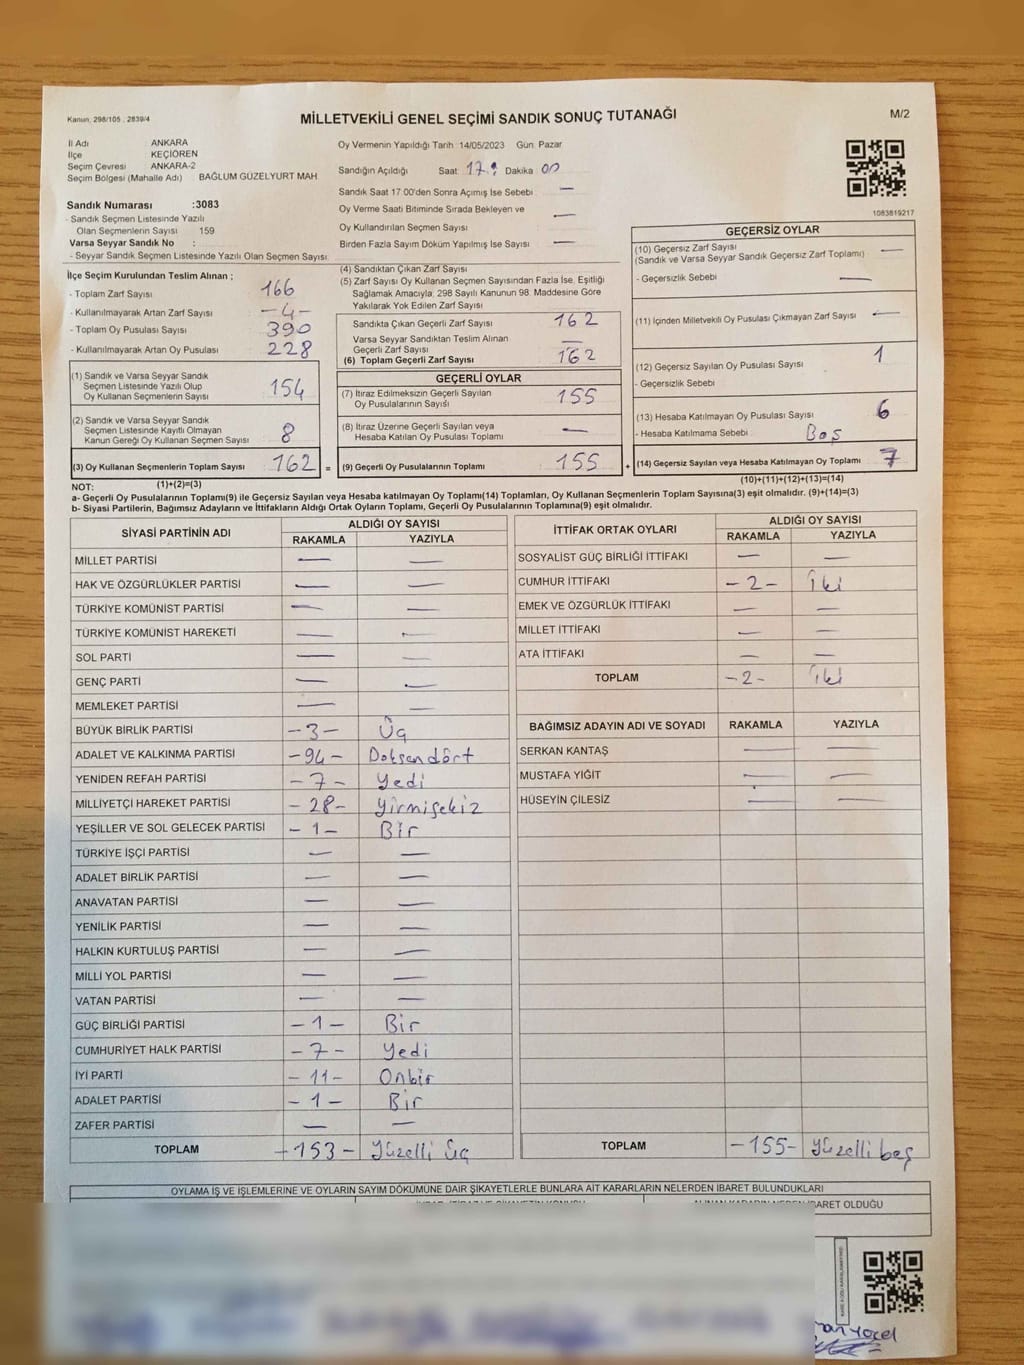 Kanun, 298/105 , 2839/4
MİLLETVEKİLİ GENEL SEÇİMİ SANDIK SONUÇ TUTANAĞI
M/2
İl Adı ANKARA
İlçe KEÇİÖREN
Seçim Çevresi ANKARA-2
Seçim Bölgesi (Mahalle Adı) BAĞLUM GÜZELYURT MAH.
Sandık Numarası :3083
- Sandık Seçmen Listesinde Yazılı
Olan Seçmenlerin Sayısı 159
Varsa Seyyar Sandık No :
- Seyyar Sandık Seçmen Listesinde Yazılı Olan Seçmen Sayısı:
Oy Vermenin Yapıldığı Tarih 14/05/2023 Gün. Pazar
Sandığın Açıldığı Saat 17: Dakika 00
Sandık Saat 17 00'den Sonra Açımış İse Sebebi —
Oy Verme Saati Bitiminde Sırada Bekleyen ve
Oy Kullandırılan Seçmen Sayısı —
Birden Fazla Sayım Döküm Yapılmış İse Sayısı —
1083819217
İlçe Seçim Kurulundan Teslim Alınan ;
- Toplam Zarf Sayısı 166
- Kullanılmayarak Artan Zarf Sayısı -4-
- Toplam Oy Pusulası Sayısı 390
- Kullanılmayarak Artan Oy Pusulası 228
(1) Sandık ve Varsa Seyyar Sandık
Seçmen Listesinde Yazılı Olup
Oy Kullanan Seçmenlerin Sayısı 154
(2) Sandık ve Varsa Seyyar Sandık
Seçmen Listesinde Kayıtlı Olmayan
Kanun Gereği Oy Kullanan Seçmen Sayısı 8
(3) Oy Kullanan Seçmenlerin Toplam Sayısı 162 =
(4) Sandıktan Çıkan Zarf Sayısı
(5) Zarf Sayısı Oy Kullanan Seçmen Sayısından Fazla İse, Eşitliği
Sağlamak Amacıyla, 298 Sayılı Kanunun 98. Maddesine Göre
Yakılarak Yok Edilen Zarf Sayısı
Sandıkta Çıkan Geçerli Zarf Sayısı 162
Varsa Seyyar Sandıktan Teslim Alınan
Geçerli Zarf Sayısı —
(6) Toplam Geçerli Zarf Sayısı 162
GEÇERLİ OYLAR
(7) İtiraz Edilmeksizin Geçerli Sayılan
Oy Pusulalarının Sayısı 155
(8) İtiraz Üzerine Geçerli Sayılan veya
Hesaba Katılan Oy Pusulası Toplamı —
(9) Geçerli Oy Pusulalarının Toplamı 155 +
GEÇERSİZ OYLAR
(10) Geçersiz Zarf Sayısı —
(Sandık ve Varsa Seyyar Sandık Geçersiz Zarf Toplamı)
- Geçersizlik Sebebi —
(11) İçinden Milletvekili Oy Pusulası Çıkmayan Zarf Sayısı —
(12) Geçersiz Sayılan Oy Pusulası Sayısı 1
- Geçersizlik Sebebi
(13) Hesaba Katılmayan Oy Pusulası Sayısı 6
- Hesaba Katılmama Sebebi Boş
(14) Geçersiz Sayılan veya Hesaba Katılmayan Oy Toplamı 7
NOT: (1)+(2)=(3) (10)+(11)+(12)+(13)=(14)
a- Geçerli Oy Pusulalarının Toplamı(9) ile Geçersiz Sayılan veya Hesaba katılmayan Oy Toplamı(14) Toplamları, Oy Kullanan Seçmenlerin Toplam Sayısına(3) eşit olmalıdır. (9)+(14)=(3)
b- Siyasi Partilerin, Bağımsız Adayların ve İttifakların Aldığı Ortak Oyların Toplamı, Geçerli Oy Pusulalarının Toplamına(9) eşit olmalıdır.
SİYASİ PARTİNİN ADI ALDIĞI OY SAYISI
RAKAMLA YAZIYLA
MİLLET PARTİSİ — —
HAK VE ÖZGÜRLÜKLER PARTİSİ — —
TÜRKİYE KOMÜNİST PARTİSİ — —
TÜRKİYE KOMÜNİST HAREKETİ — —
SOL PARTİ — —
GENÇ PARTİ — —
MEMLEKET PARTİSİ — —
BÜYÜK BİRLİK PARTİSİ -3- Üç
ADALET VE KALKINMA PARTİSİ -94- Doksandört
YENİDEN REFAH PARTİSİ -7- Yedi
MİLLİYETÇİ HAREKET PARTİSİ -28- Yirmisekiz
YEŞİLLER VE SOL GELECEK PARTİSİ -1- Bir
TÜRKİYE İŞÇİ PARTİSİ — —
ADALET BİRLİK PARTİSİ — —
ANAVATAN PARTİSİ — —
YENİLİK PARTİSİ — —
HALKIN KURTULUŞ PARTİSİ — —
MİLLİ YOL PARTİSİ — —
VATAN PARTİSİ — —
GÜÇ BİRLİĞİ PARTİSİ -1- Bir
CUMHURİYET HALK PARTİSİ -7- Yedi
İYİ PARTİ -11- Onbir
ADALET PARTİSİ -1- Bir
ZAFER PARTİSİ — —
TOPLAM -153- Yüzelli üç
İTTİFAK ORTAK OYLARI ALDIĞI OY SAYISI
RAKAMLA YAZIYLA
SOSYALİST GÜÇ BİRLİĞİ İTTİFAKI — —
CUMHUR İTTİFAKI -2- İki
EMEK VE ÖZGÜRLÜK İTTİFAKI — —
MİLLET İTTİFAKI — —
ATA İTTİFAKI — —
TOPLAM -2- İki
BAĞIMSIZ ADAYIN ADI VE SOYADI RAKAMLA YAZIYLA
SERKAN KANTAŞ — —
MUSTAFA YİĞİT — —
HÜSEYİN ÇİLESİZ — —
TOPLAM -155- Yüzelli beş
OYLAMA İŞ VE İŞLEMLERİNE VE OYLARIN SAYIM DÖKÜMÜNE DAİR ŞİKAYETLERLE BUNLARA AİT KARARLARIN NELERDEN İBARET BULUNDUKLARI
BARET OLDUĞU